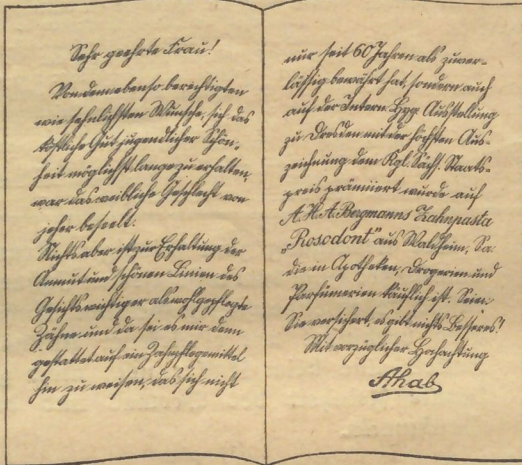 Sehr geehrte Frau!
Von dem ebenso berechtigten
wie sehnlichsten Wunsche, sich das
köstliche Gut jugendlicher Schön-
heit möglichst lange zu erhalten,
war das weibliche Geschlecht von
jeher beseelt.
Nichts aber ist zur Erhaltung der
Anmut und schönen Linien des
Gesichts wichtiger als wohlgepflegte
Zähne und da sei es mir denn
gestattet auf ein Zahnpflegemittel
hin zu weisen, das sich nicht
nur seit 60 Jahren als zuver-
lässig bewährt hat, sondern auch
auf der Intern. Hyg. Ausstellung
zu Dresden mit der höchsten Aus-
zeichnung dem Kgl. Sächs. Staats-
preis prämiiert wurde auf
A. H. A. Bergmanns Zahnpasta
„Rosodont" aus Waldheim, Sa.
die in Apotheken, Drogerien und
Parfümerien käuflich ist. Seien
Sie versichert, es gibt nichts Besseres!
Mit vorzüglicher Hochachtung
Ahab